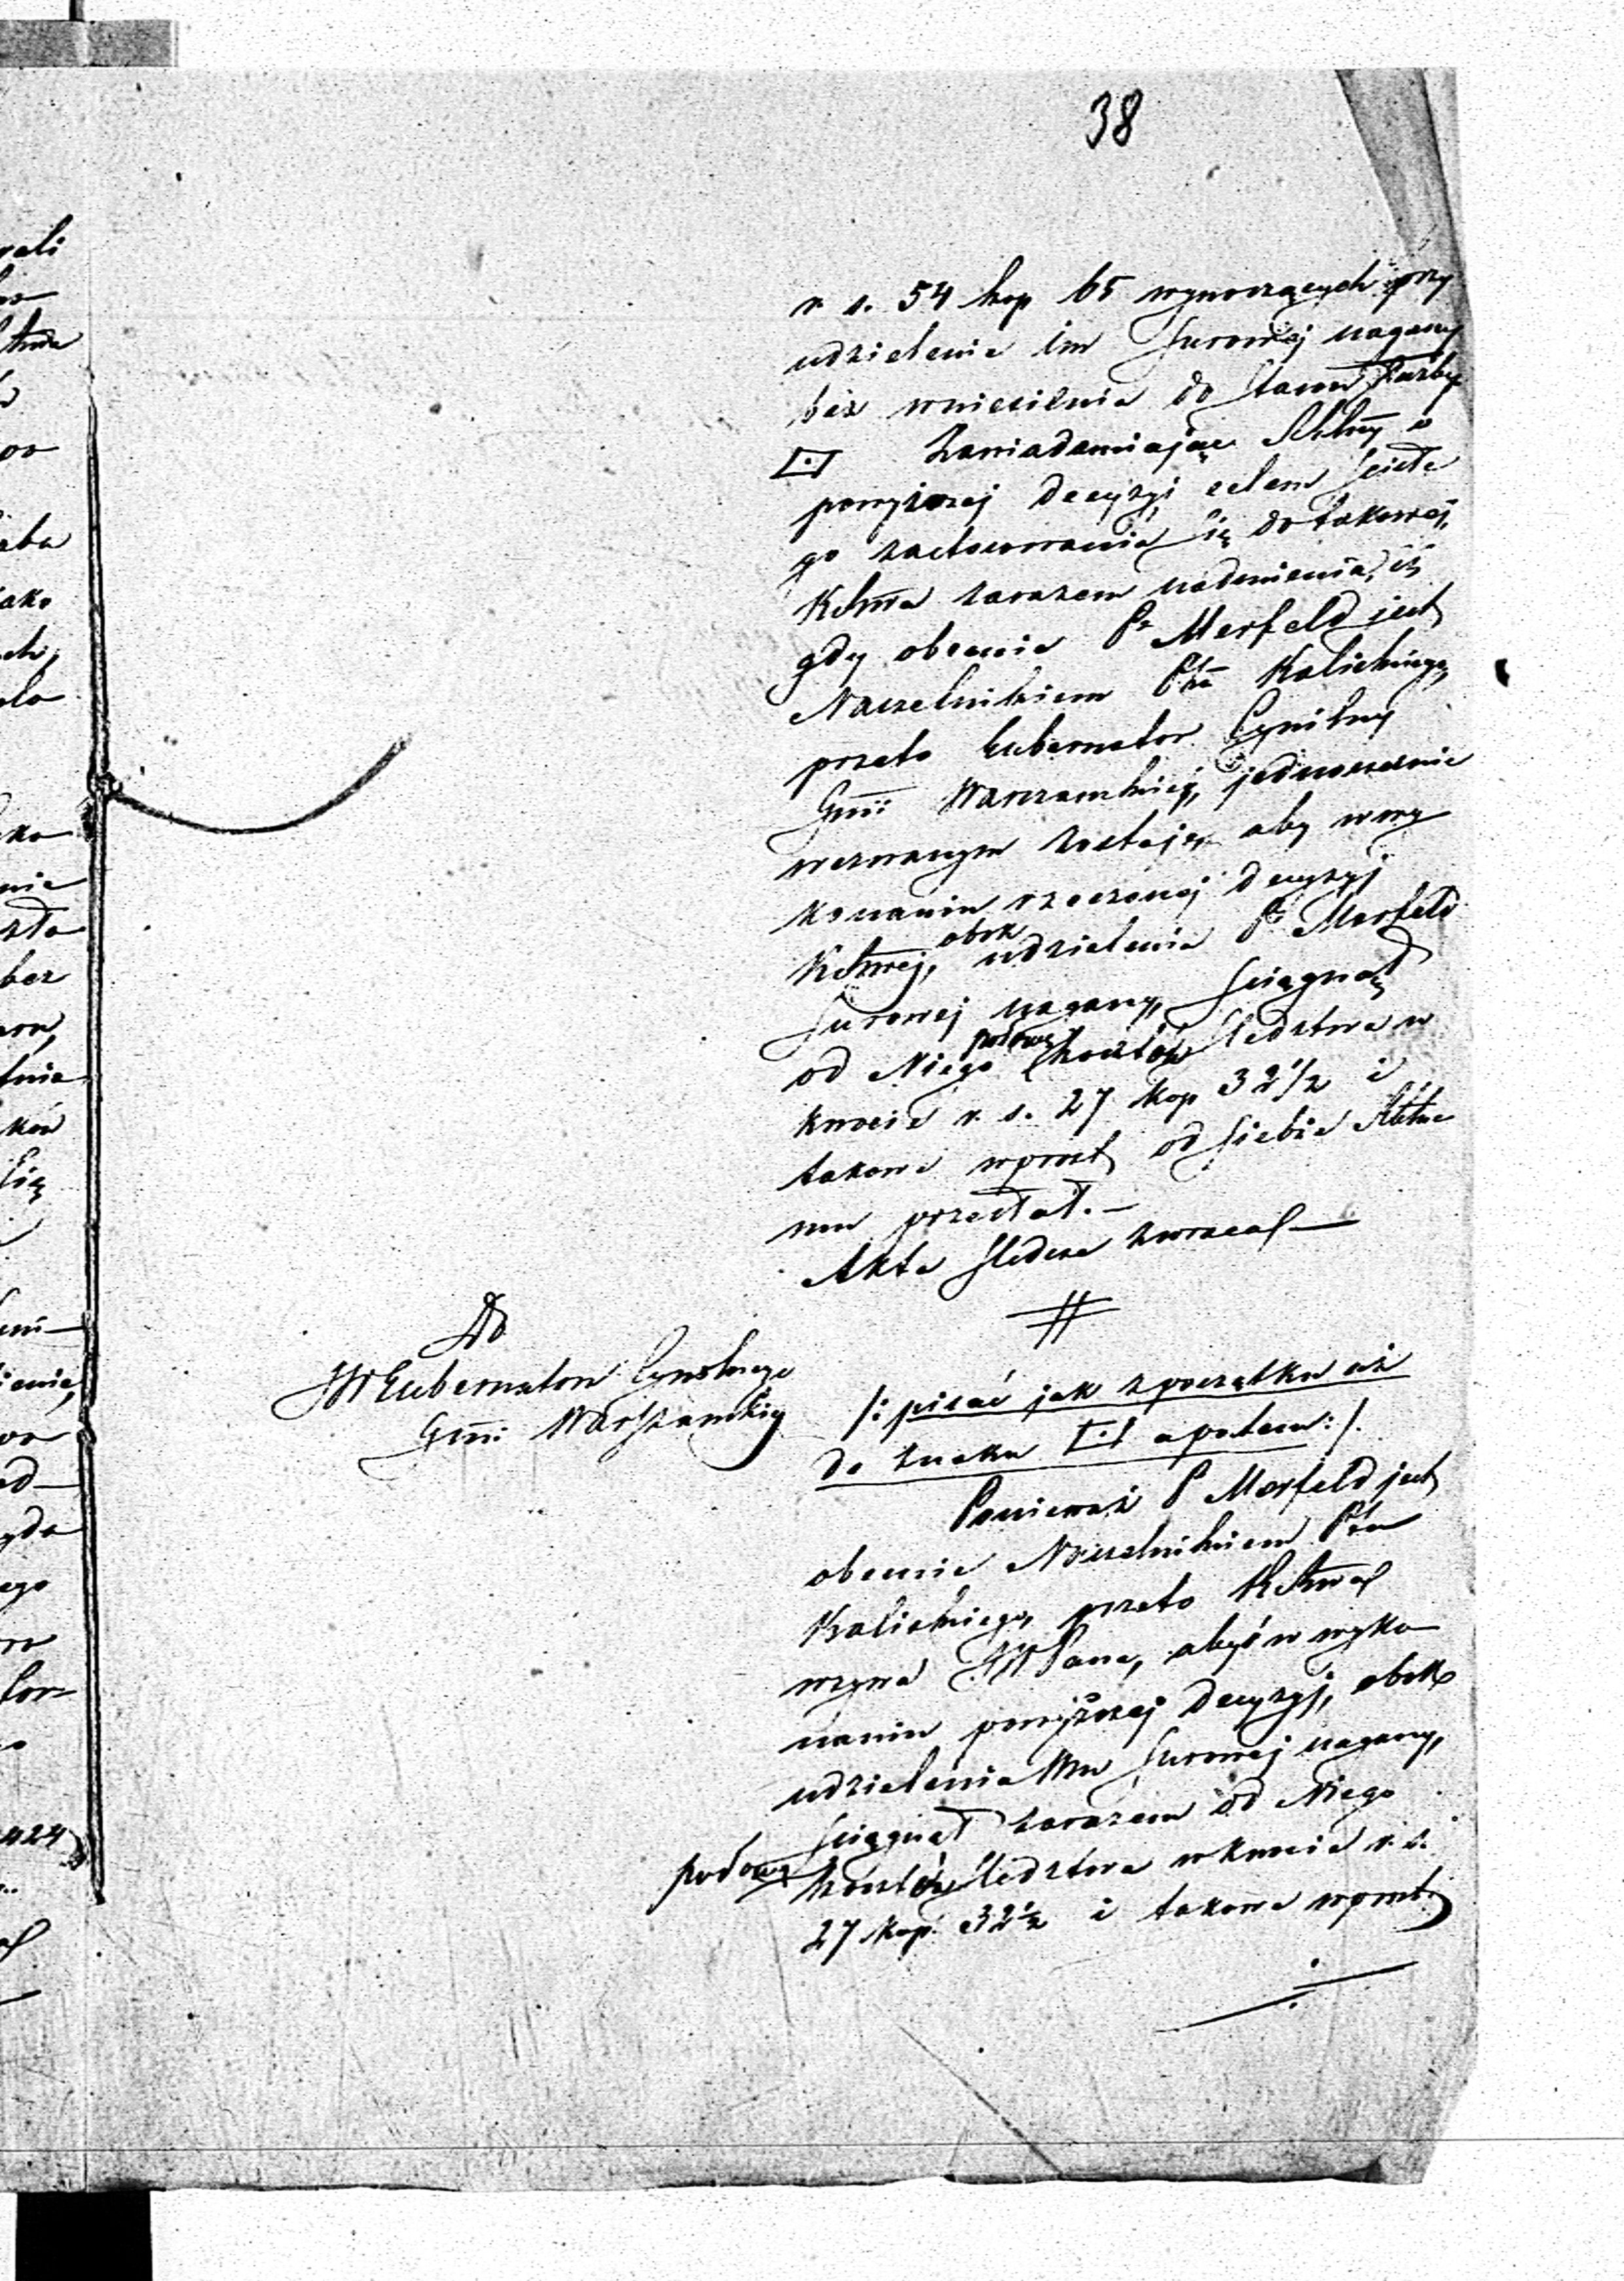 38
r. s. 54 kop 65 wynoszących przy
udzielenie im surowej nagany
bez wniesienia do stanu służby
Zawiadamiając o
powyższej decyzyi celem ścisłe
go zastosowania się do takowej,
zarazem nadmienia, iż
gdy obecnie Pr Merfeld jest
Naczelnikiem Ptu Kaliskiego,
przeto Gubernator Cywilny
Gnii Warszawskiej, jednocześnie
wezwanym zostaje, aby w wy
konaniu rzeczonej decyzyj
obok
udzielenia Pr Merfeld
surowej nagany, ściągnął
połowę
od Niego kosztów śledztwa w
kwocie r. s. 27 kop 32 1/2 i
takowe wprost od siebie
mu przesłał.—
Akta śledcze zwraca—
Do
JW Gubernatora Cywilnego
Gnii Warszawskiej
/: pisać jak z początku aż
do znaku a potem :/.
Ponieważ P Merfeld jest
obecnie Naczelnikiem Ptu
Kaliskiego, przeto
wzywa JW Pana, abyś w wyko
naniu powyższej decyzyj, obok
udzielenia Mu surowej nagany,
ściągnął zarazem od Niego
połowę kosztów śledztwa w kwocie r. s.
27 kop. 32 1/2 i takowe wprost